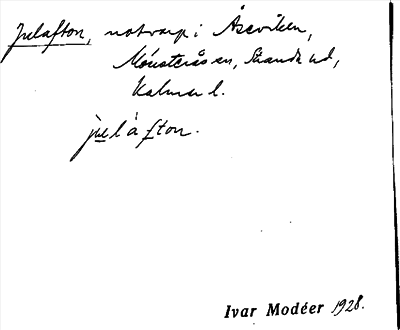 Julafton, notvarp i Åseviken,
Mönsterås sn, Stranda hd,
Kalmar l.
julàfton.
Ivar Modéer 1928.